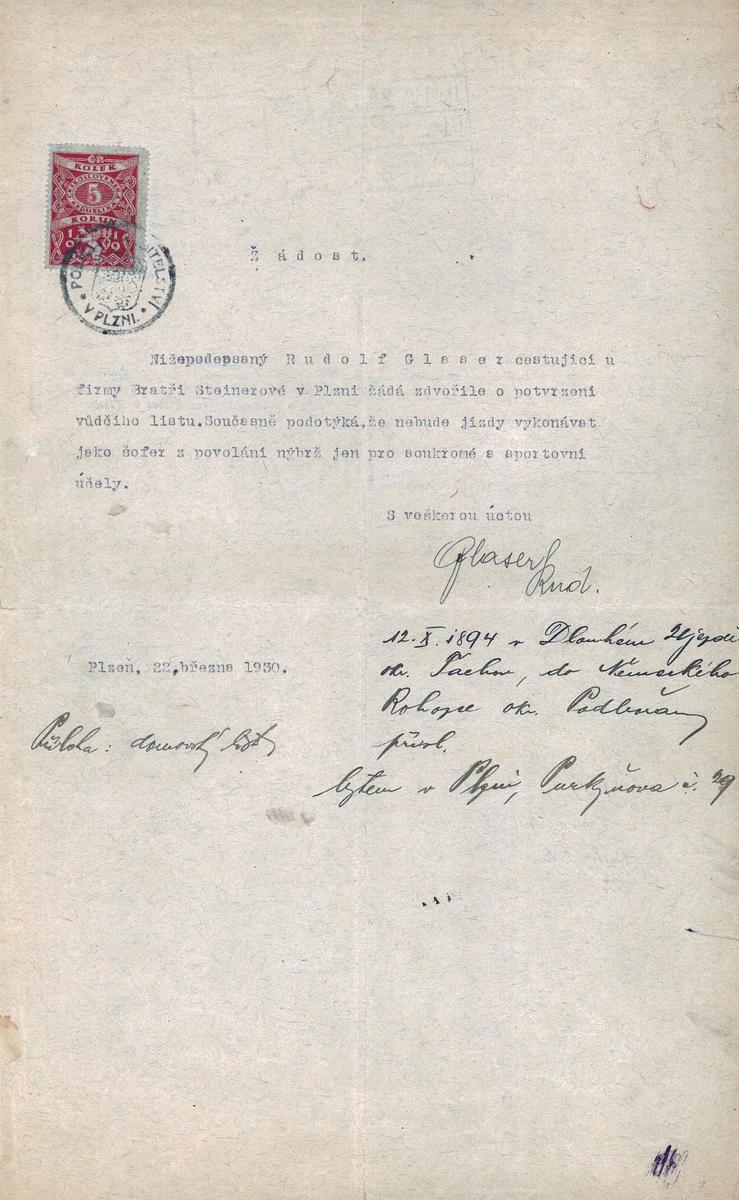 KOLEK
ČESKOSLOVENSKÁ
5
REPUBLIKA
KORUN
1919
POLICEJNÍ ŘEDITELSTVÍ
* V PLZNI. *
Žádost.
Nižepodepsaný Rudolf Glaser cestující u
firmy Bratři Steinerové v Plzni žádá zdvořile o potvrzení
vůdčího listu.Současně podotýká,že nebude jízdy vykonávat
jako šofer z povolání nýbrž jen pro soukromé a sportovní
účely.
S veškerou úctou
Glaser
Rud.
12.X.1894 v Dlouhém Újezdě
Plzeň, 22.března 1930.
okr. Tachov, do Německého
okr.
Příloha: domovský list
přísl.
bytem v Plzni, Purkyňova č. 29